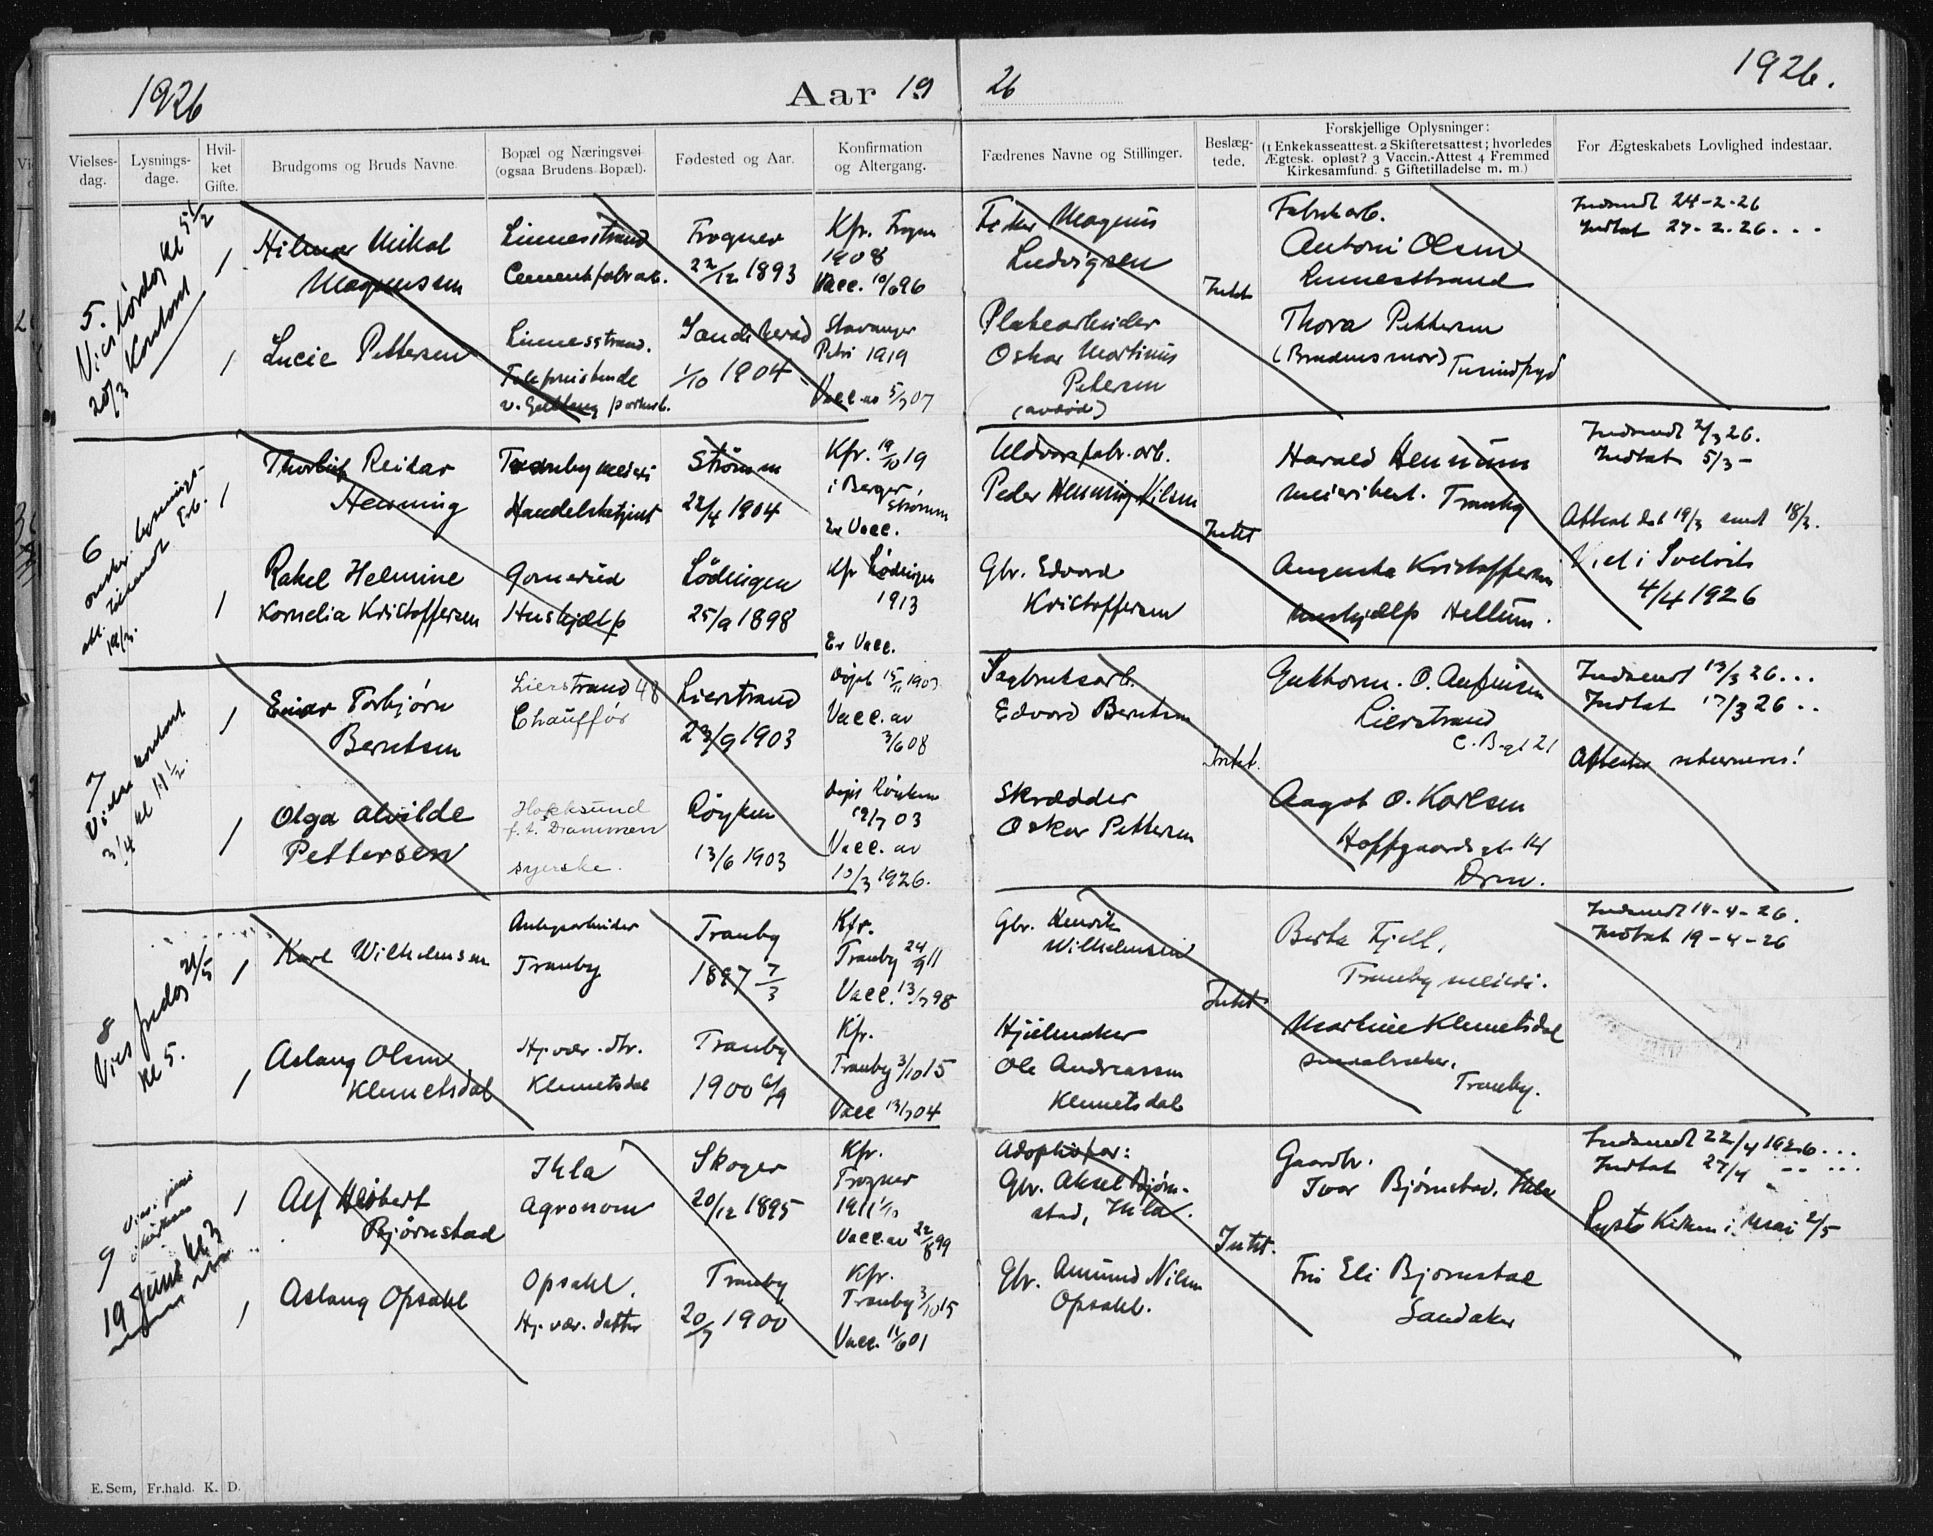 1926
Aar 1926
1926.
Vielses-dag.
Lysnings-dage.
Hvil-ket Gifte.
Brudgoms og Bruds Navne.
Bopæl og Næringsvei (ogsaa Brudens Bopæl).
Fødested og Aar.
Konfirmation og Altergang.
Fædrenes Navne og Stillinger.
Beslæg-tede.
Forskjellige Oplysninger: (1 Enkekasseattest. 2 Skifteretsattest; hvorledes Ægtesk. opløst? 3 Vaccin.-Attest 4 Fremmed Kirkesamfund. 5 Giftetilladelse m. m.)
For Ægteskabets Lovlighed indestaar.
5.
Vies lørdag kl 5 1/2
20/3 Kontoret
1
Hilmar Mikal
Magnussen
Linnesstrand
Cementfabr.arb.
Frogner
22/12 1893
Kfr. Frogn
1908
Vacc. 10/6 96
Fisker Magnus
Ludvigsen
Intet
Fabrikarb.
Antoni Olsen
Linnesstrand
Indsendt 24-2-26
Indtat 27-2-26...
1
Lucie Pettersen
Linnesstrand.
Sandeherad
1/10 1904
Stavanger
Petri 1919
Vacc. av 5/7 07
Platearbeider
Oskar Martinus
Petersen
(avdød)
Thora Pettersen
(Brudens mor)
6
1
Thorleif Reidar
Henning
Tranby meieri
Handelsbetjent
Strømm
22/4 1904
Kfr. 19/10 19
i Berger
Strømm
Er Vacc.
Uldvarefabr.arb.
Peder Henning Nilsen
Intet
Harald Hennum
meieribest. Tranby
Indsendt 2/3 26.
Indtat 5/3 -
Attest dat 19/3 sendt 18/3.
1
Rakel Helmine
Kornelia Kristoffersen
Gomerud
Hushjælp
Lødingen
25/9 1898
Kfr Lødingen
1913
Er Vacc.
Gbr. Edvard
Kristoffersen
Augusta Kristoffersen
Hushjælp Hellum.
Viet i Svelvik
4/4 1926
7
Vielse kontoret
3/4 kl 11 1/2.
1
Einar Torbjørn
Berntsen
Lierstrand 48
Chauffør
Lierstrand
23/9 1903
Døpt 15/11 1903
Vacc. av
3/6 08
Sagbruksarb.
Edvard Berntsen
Intet.
Guthorm. O. Anfinsen
Lierstrand
Indsendt 13/3 26...
Indtat 17/3 26..
Attester returneres!
1
Olga Alvilde
Pettersen
Hokksund
f.t. Drammen
syerske.
Røyken
13/6 1903
døpt Røyken
12/7 03
Vacc. av
10/3 1926.
Skrædder
Oskar Pettersen
Aagot O. Karlsen
Hoffgaardsgt 14
Drm.
8
Vies fredag 21/5
kl 5.
1
Karl Wilhelmsen
Anlegsarbeider
Tranby
Tranby
1897 7/3
Kfr.
Tranby 24/9 11
Vacc. 13/7 98
Gbr. Henrik
Wilhelmsen
Intet
Berta Fjell,
Tranby meieri.
Indsendt 14-4-26.
Indtat 19-4-26
1
Aslaug Olsen
Klemetsdal
Hj.vær. dtr.
Klemetsdal
Tranby
1900 6/9
Kfr.
Tranby 3/10 15
Vacc 13/7 04
Hjulmaker
Ole Andreassen
Klemetsdal
Martine Klemetsdal
Tranby.
9
19 Juni kl 3
1
Alf Herbert
Bjørnstad
Ihla
Agronom
Skoger
20/12 1895
Kfr.
Frogner
1911 1/10
Vacc. av 22/8 99
Adoptivfar:
Gbr. Aksel Bjørn-
stad, Ihla.
Intet.
Gaardbr.
Ivar Bjørnstad, Ihle
Indsendt 22/4 1926...
Indtat 27/4
Lyst i Kirken i Mai 2/5
1
Aslaug Opsahl
Opsahl.
Hj. vær. datter
Tranby
20/7 1900
Kfr.
Tranby 3/10 15
Vacc. 11/6 01
Gbr. Amund Nilsen
Opsahl.
Frk Eli Bjørnstad
Sandaker
E. Sem, Fr.hald. K. D.